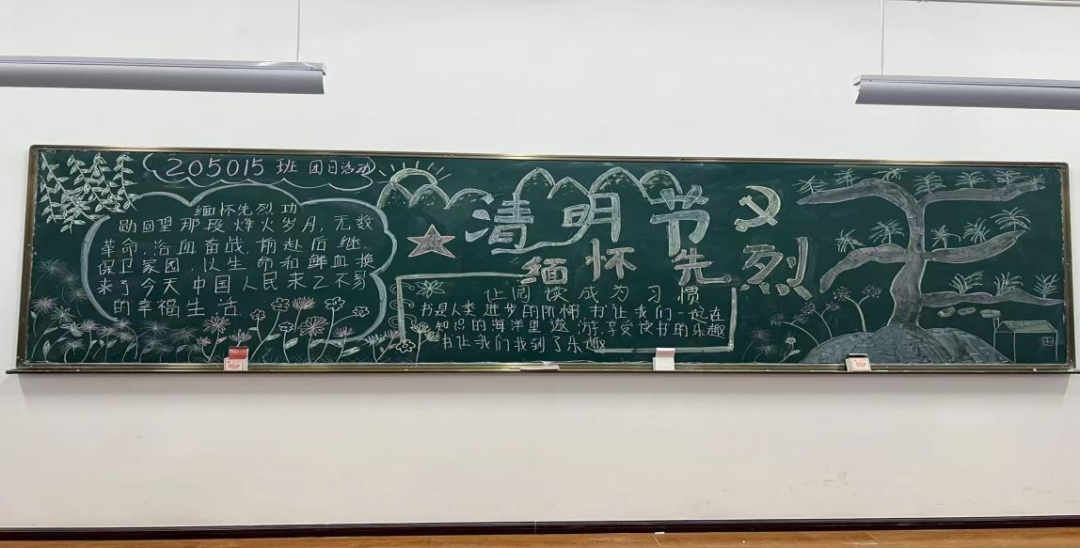 205015班 团日活动
缅怀先烈功
勋回望那段烽火岁月,无数
革命,浴血奋战,前赴后继,
保卫家园,以生命和鲜血换
来了今天中国人民来之不易
的幸福生活
清明节
缅怀先烈
让阅读成为习惯
书是人类进步的阶梯,书让我们一起在
知识的海洋里遨游,享受读书的乐趣
书让我们找到了乐趣